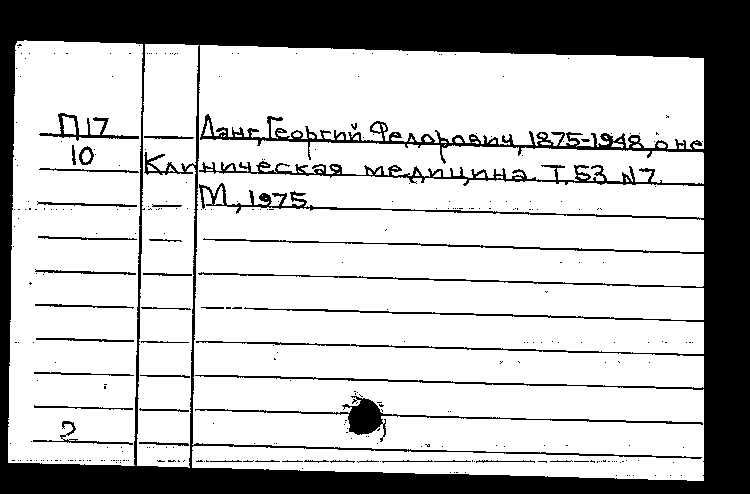 П17 Ланг, Георгий Федорович, 1875-1948, о не
10 Клиническая медицина. Т. 53 N 7.
М., 1975.
2